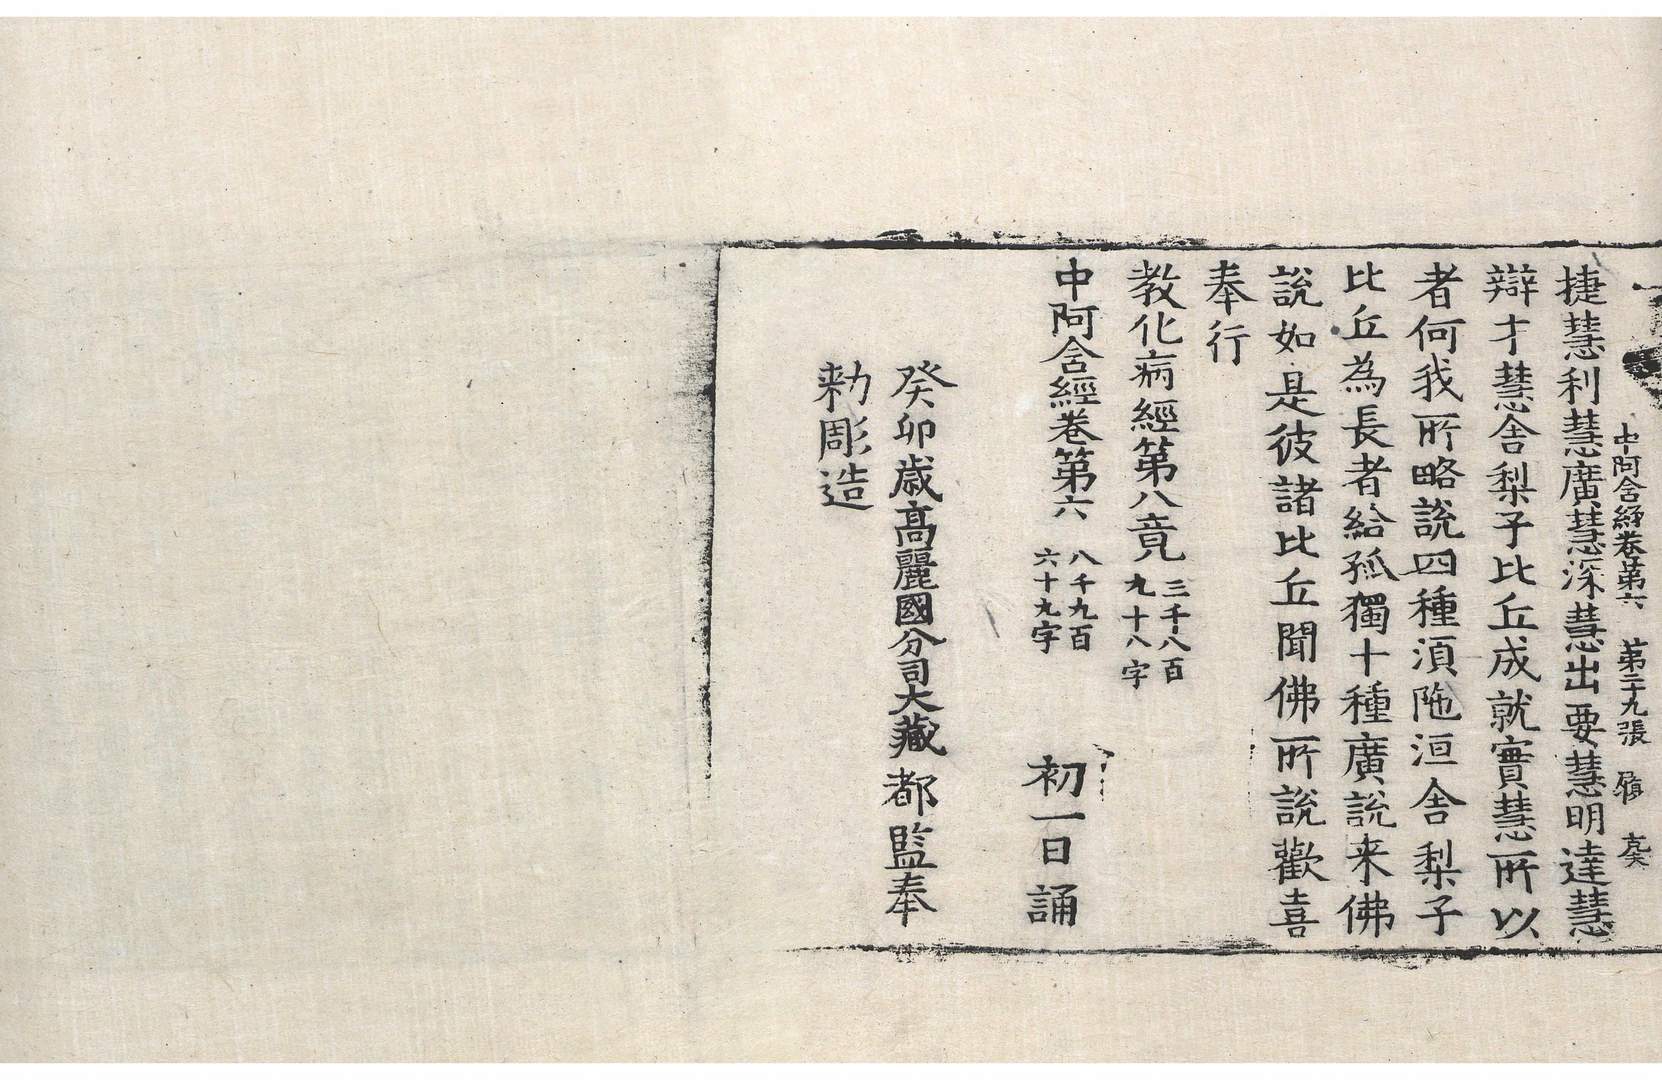 中阿含經卷第六 第二十九張 癸
捷慧利慧廣慧深慧出要慧明達慧
辯才慧舍梨子比丘成就實慧所以
者何我所略說四種湏陁洹舍梨子
比丘為長者給孤獨十種廣說来佛
說如是彼諸比丘聞佛所說歡喜
奉行
教化病經第八竟 三千八百
九十八字
中阿含經卷第六 八千九百
六十九字 初一日誦
癸卯歲高麗國分司大藏都監奉
勑彫造